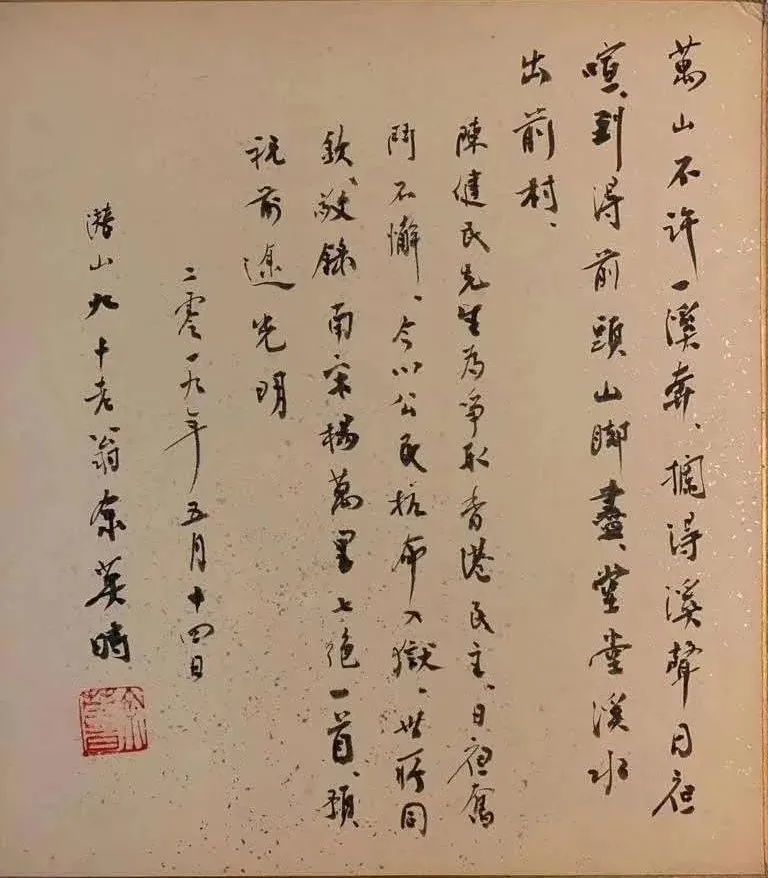 萬山不許一溪奔、攔得溪聲日夜
喧、到得前頭山腳盡、堂堂溪水
出前村、
陳健民先生為爭取香港民主、日夜奮
鬥不懈、今以公民抗命入獄、世所同
欽、敬錄南宋楊萬里七絕一首、預
祝前途光明
二零一九年五月十四日
潛山九十老翁余英時
余英時